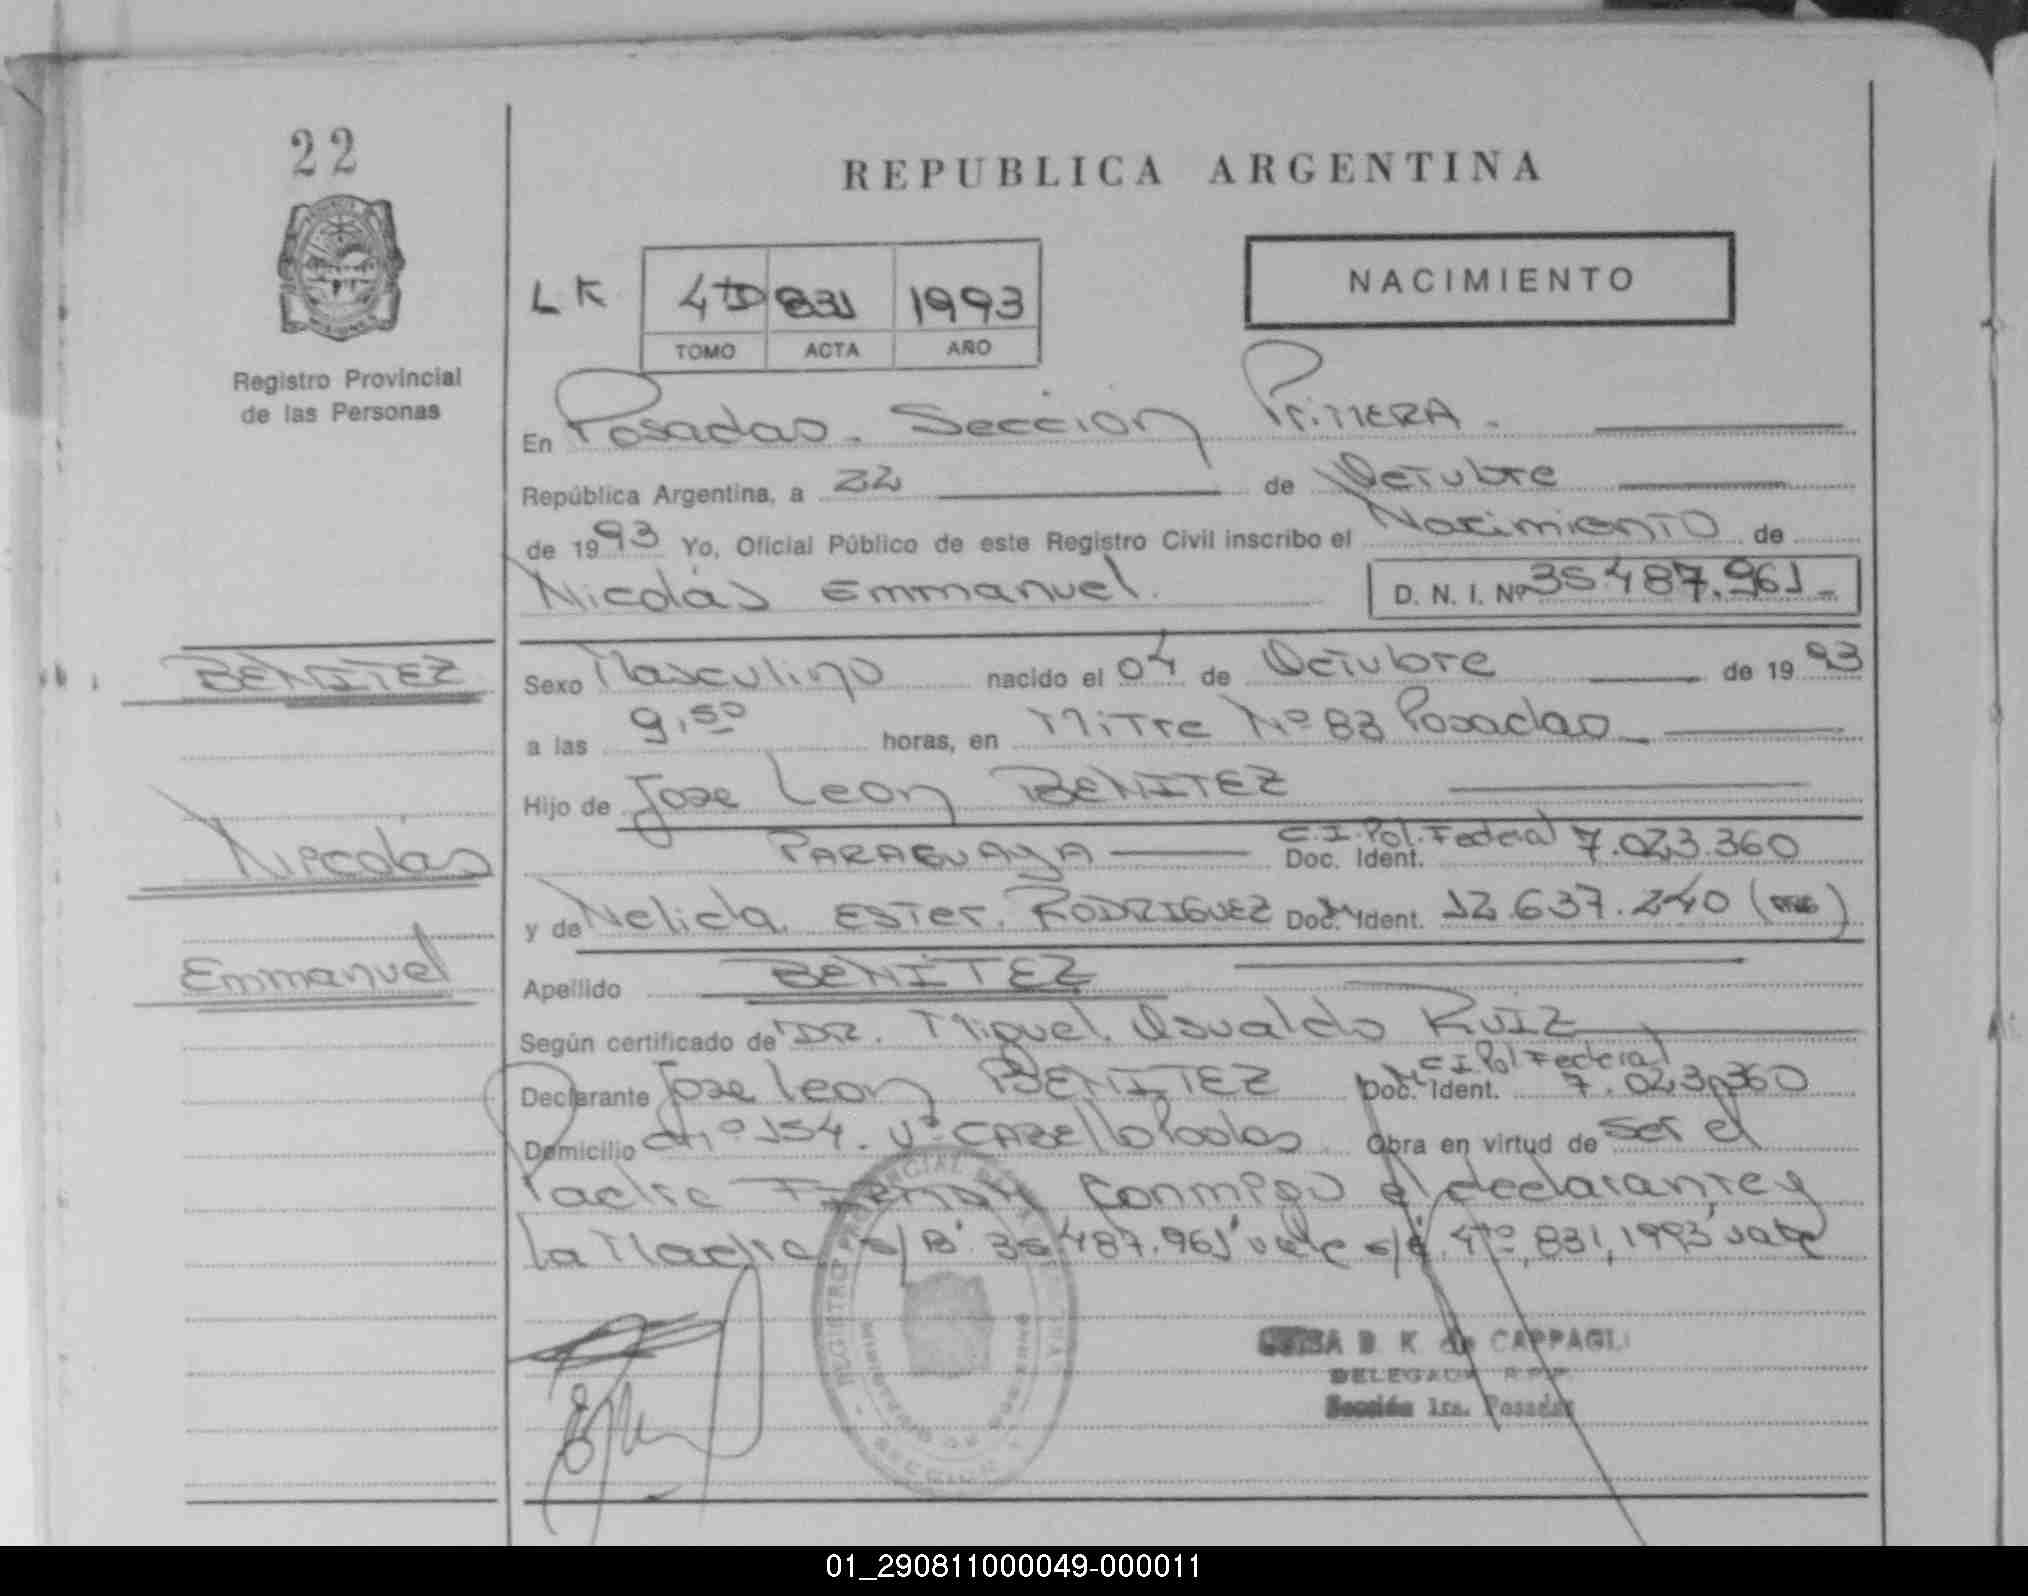 22
REPUBLICA ARGENTINA
LK 4to 831 1993
TOMO ACTA AÑO
NACIMIENTO
Registro Provincial
de las Personas
En Posadas. Sección Primera.
República Argentina, a 22 de Octubre
de 1993 Yo, Oficial Público de este Registro Civil inscribo el Nacimiento de
Nicolás Emmanuel. D. N. I. Nº 35.487.961
BENITEZ
Nicolás
Emmanuel
Sexo Masculino nacido el 04 de Octubre de 1993
a las 9,50 horas, en Mitre Nº 83 Posadas
Hijo de Jose Leon BENITEZ
PARAGUAYA C.I. Pol. Federal Doc. Ident. 7.023.360
y de Nelida Ester RODRIGUEZ Doc. Ident. 12.637.240
Apellido BENITEZ
Según certificado de DR. Miguel Osvaldo RUIZ
Declarante Jose Leon BENITEZ Doc. Ident. C I Pol Federal 7.023.360
Domicilio Ch nº 154. Vª CABELLO Posadas Obra en virtud de ser el
Padre Firman conmigo el declarante y
la Madre s/B 35.487.961 vale s/ 4to, 831, 1993 vale
REGISTRO PROVINCIAL DE LAS PERSONAS
MINISTERIO DE GOBIERNO
SECCION
B K de CAPPAGLI
DELEGADA R.P.P.
Sección 1ra. Posadas
01_290811000049-000011